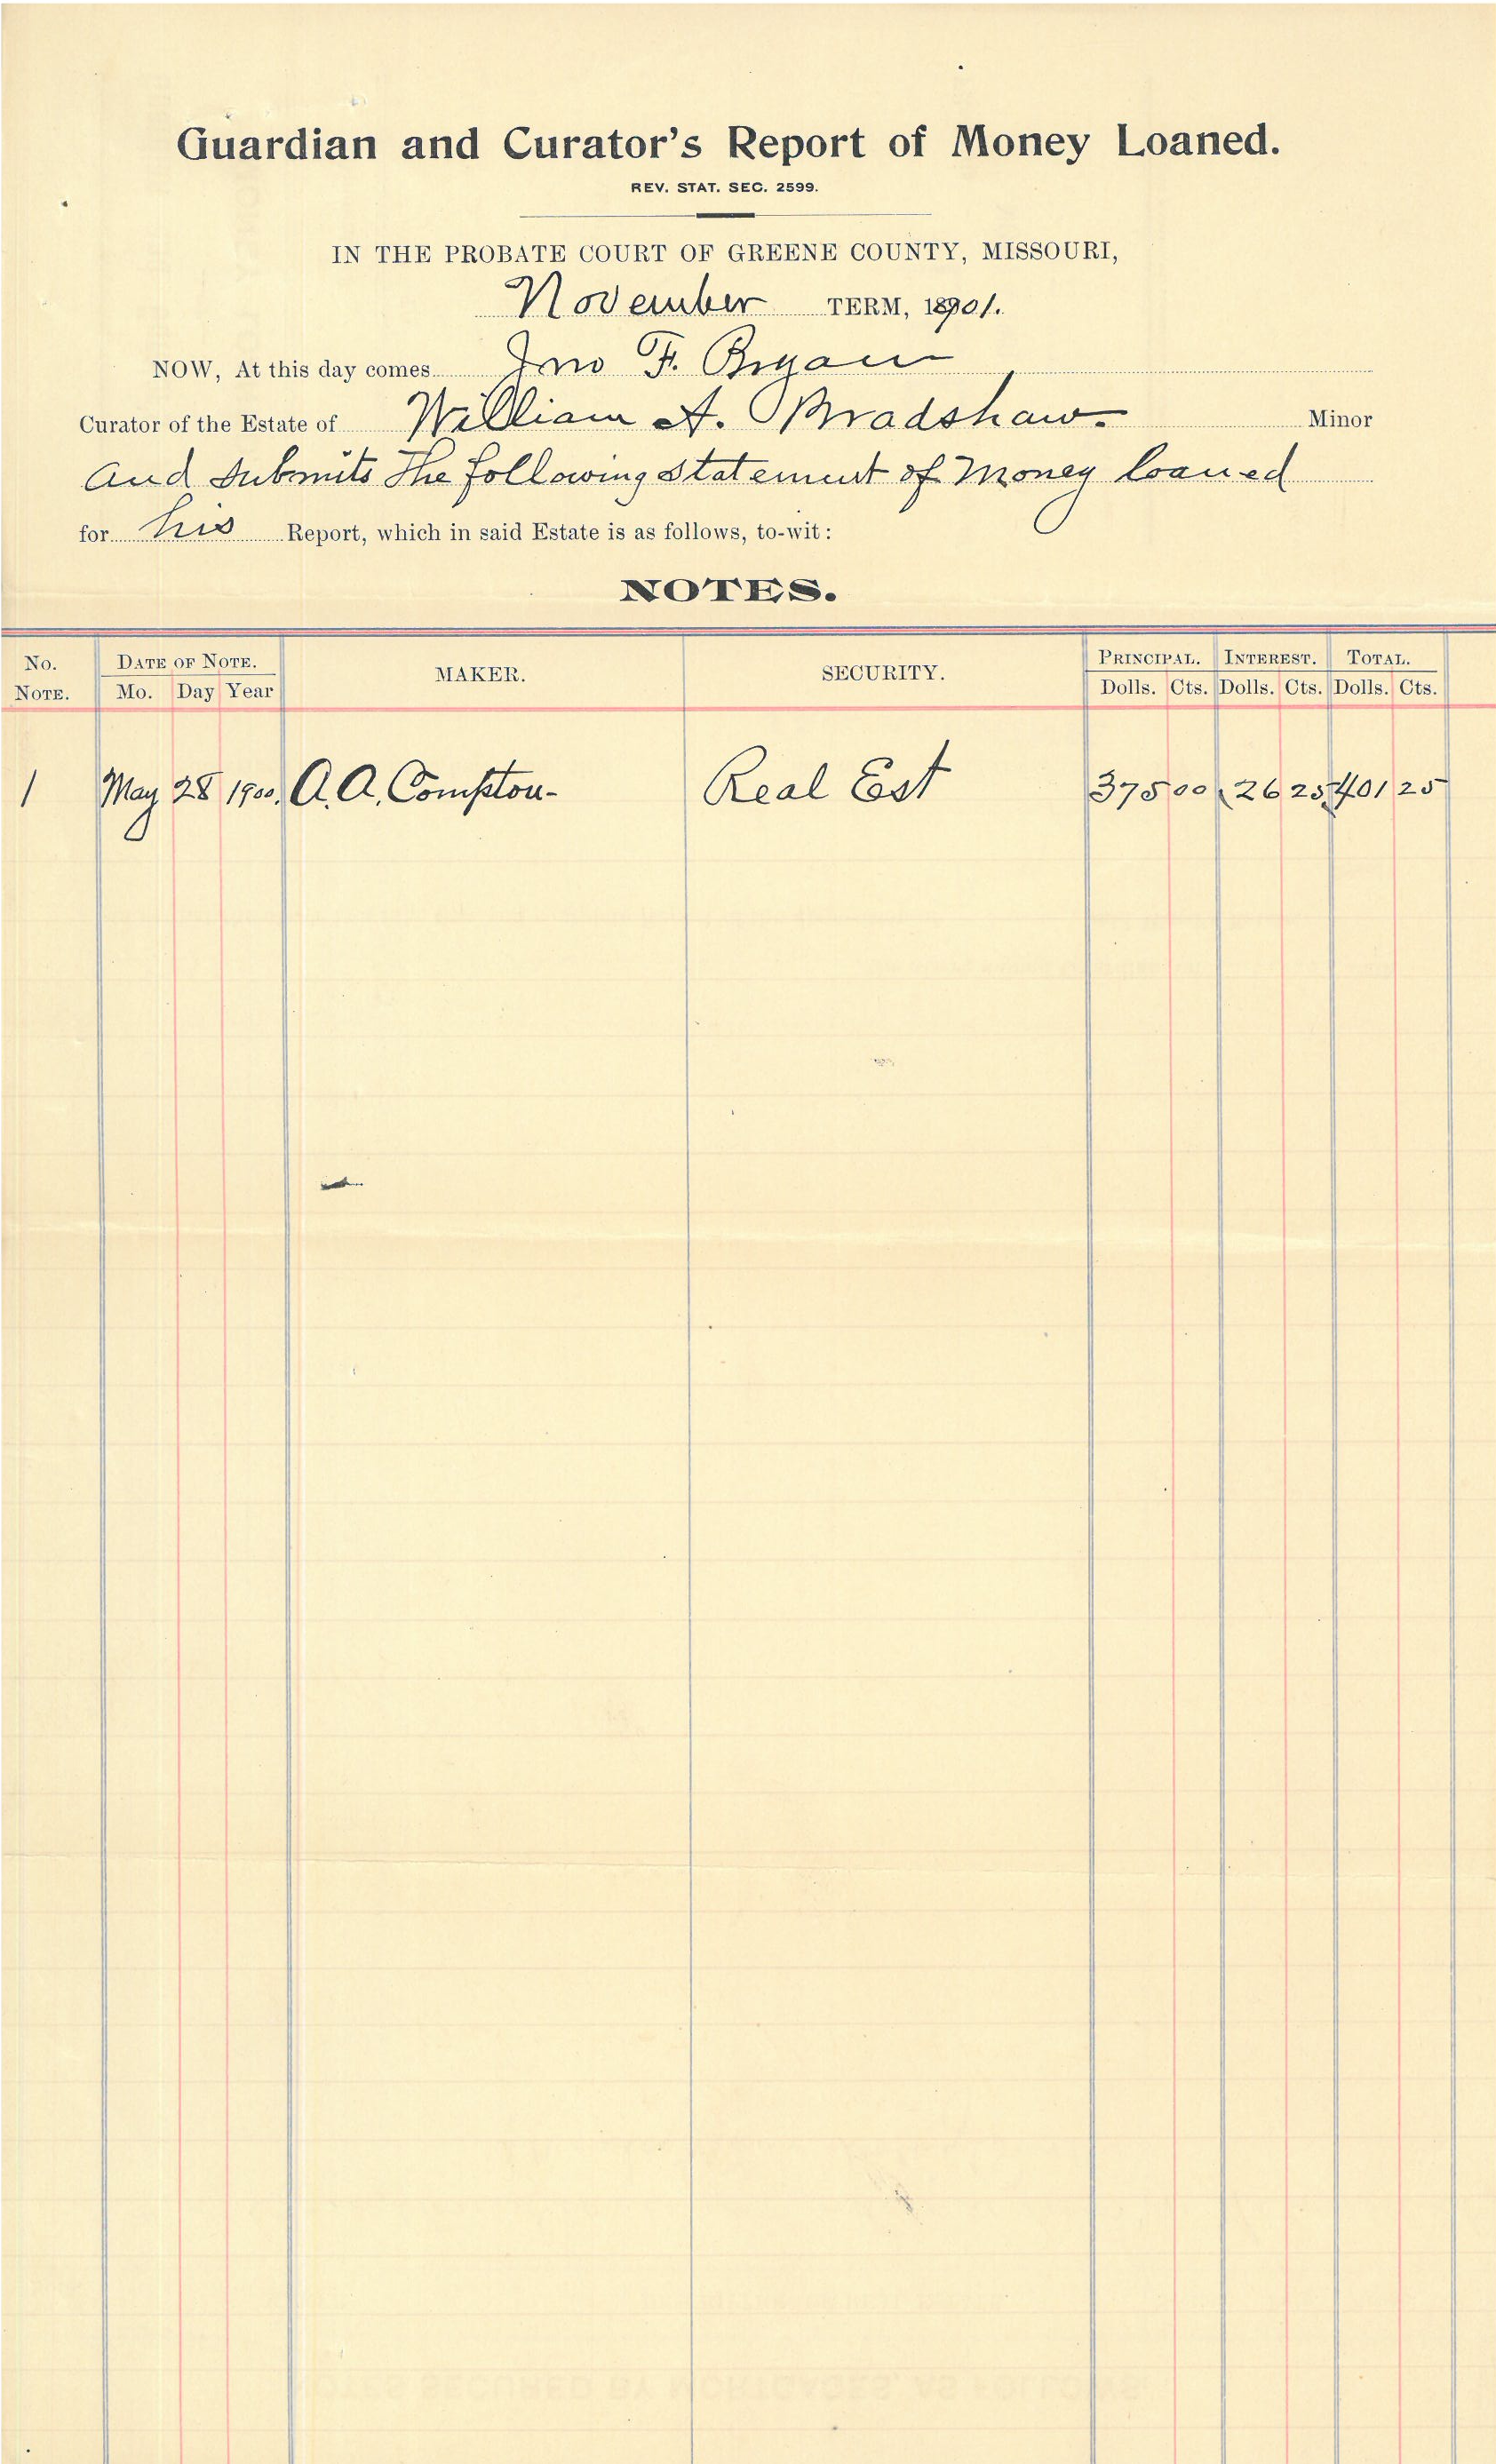 Guardian and Curator's Report of Money Loaned.
REV. STAT. SEC. 2599.
IN THE PROBATE COURT OF GREENE COUNTY, MISSOURI,
November TERM, 1901.
NOW, At this day comes Jno F. Bryan
Curator of the Estate of William A. Bradshaw. Minor
and submits the following statement of money loaned
for his Report, which in said Estate is as follows, to-wit:
NOTES.
No. NOTE. DATE OF NOTE. Mo. Day Year MAKER. SECURITY. PRINCIPAL. Dolls. Cts. INTEREST. Dolls. Cts. TOTAL. Dolls. Cts.
1 May 28 1900. A. A. Compton- Real Est 375 00 26 25 401 25